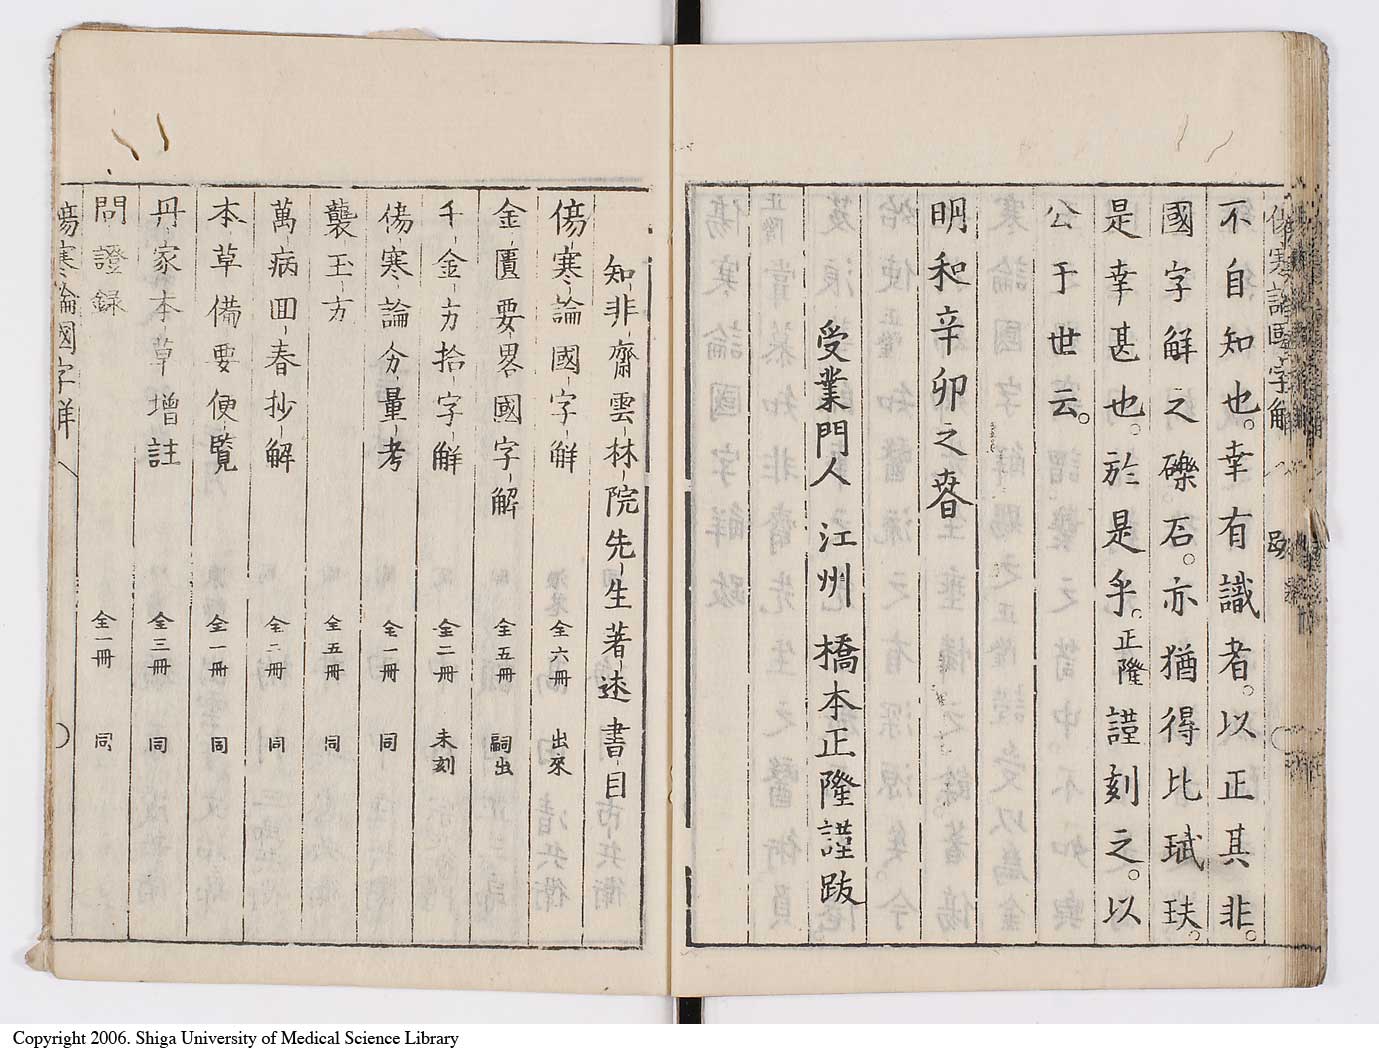 不自知也。幸有識者。以正其非。
國字解之礫石。亦猶得比珷玞。
是幸甚也。於是乎。正隆謹刻之。以
公于世云。
明和辛卯之春
受業門人 江州 橋本正隆謹跋
知非齋雲林院先生著述書目
傷寒論國字解 全六冊 出來
金匱要畧國字解 全五冊 嗣出
千金方拾字解 全二冊 未刻
傷寒論分量考 全一冊 同
襲玉方 全五冊 同
萬病回春抄解 全二冊 同
本草備要便覧 全一冊 同
丹家本草增註 全三冊 同
問證録 全一冊 同
傷寒論國字解
Copyright 2006. Shiga University of Medical Science Library